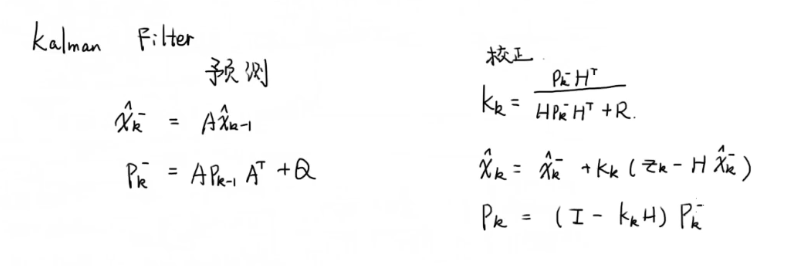 Kalman Filter
预测
x̂ₖ⁻ = Ax̂ₖ₋₁
Pₖ⁻ = APₖ₋₁Aᵀ + Q
校正
Kₖ = Pₖ⁻Hᵀ / HPₖ⁻Hᵀ + R.
x̂ₖ = x̂ₖ⁻ + Kₖ(zₖ - Hx̂ₖ⁻)
Pₖ = (I - KₖH)Pₖ⁻